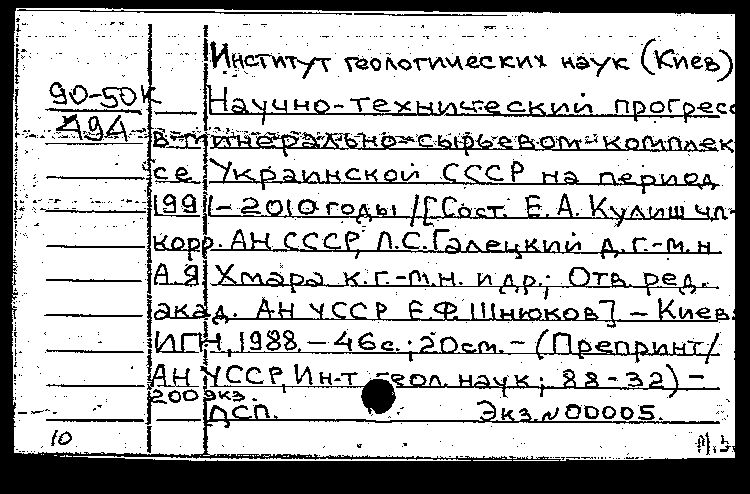 Институт геологических наук (Киев)
90-50К
494
Научно-технический прогресс
в минерально-сырьевом комплек
се Украинской СССР на период
1991-2010 годы /[Сост. Е.А. Кулиш чл-
корр. АН СССР, Л.С. Галецкий д.г.-м.н
А.Я Хмара к.г.-м.н. и др.; Отв. ред.
акад. АН УССР Е.Ф. Шнюков]. – Киев:
ИГН, 1988. – 46с.; 20см. – (Препринт/
АН УССР, Ин-т геол. наук; 88-32) –
200 экз.
ДСП. Экз. N00005.
10